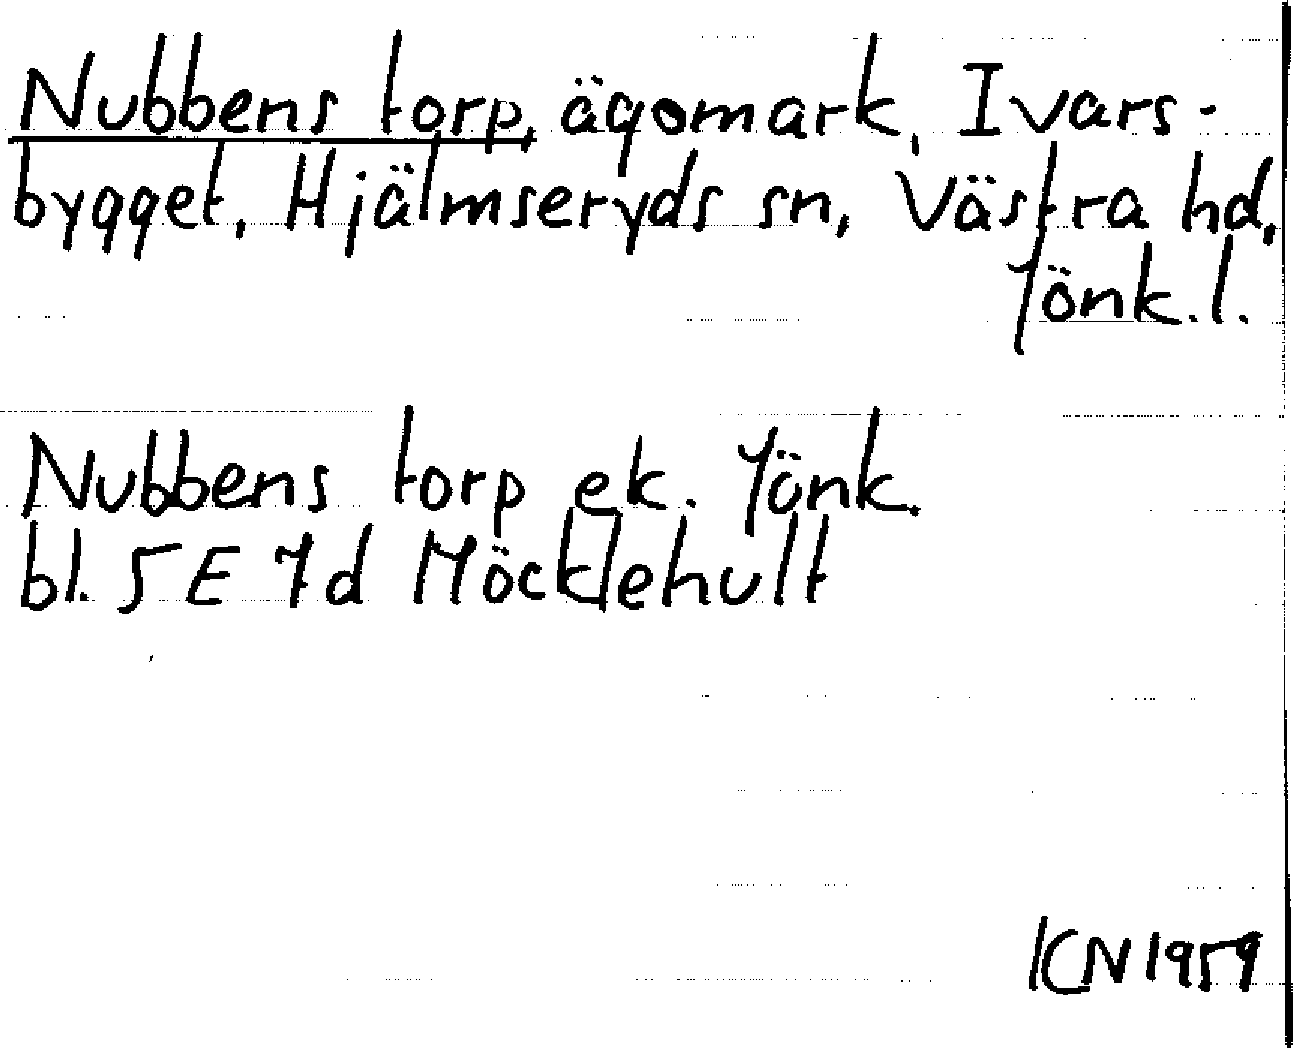 Nubbens torp, ägomark, Ivars-
bygget, Hjälmseryds sn, Västra hd,
Jönk. l.
Nubbens torp ek. Jönk.
bl. 5 E 7d Möcklehult
KN 1959